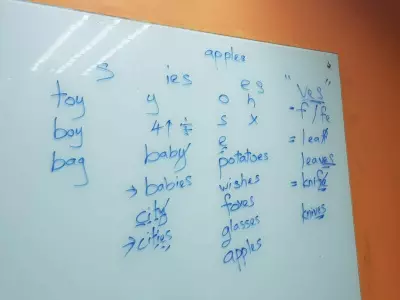 apples
s ies es "ves"
toy y o h = f/fe
boy s x = leaf
bag baby e leaves
→ babies potatoes = knife
city wishes knives
→ cities foxes
glasses
apples